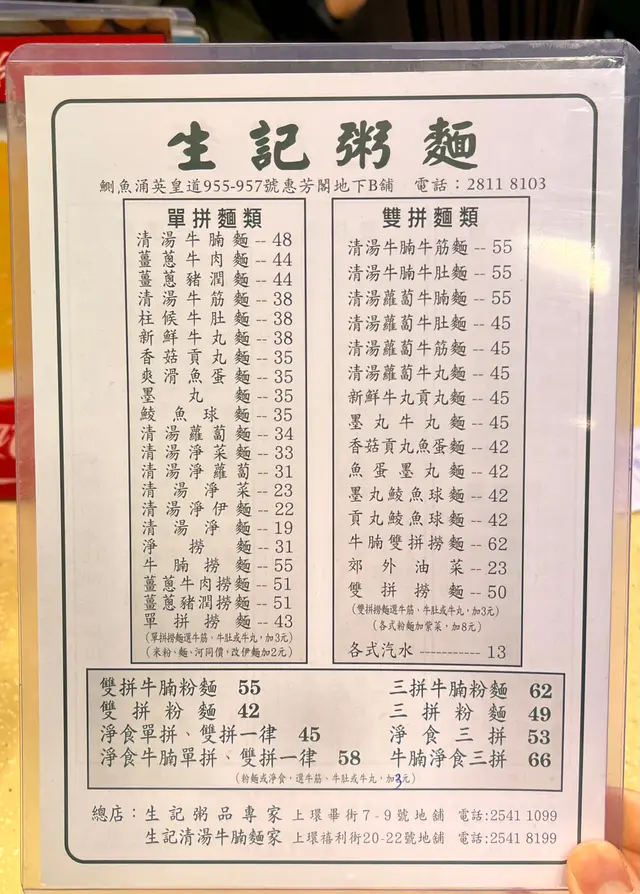 生記粥麵
鰂魚涌英皇道955-957號惠芳閣地下B舖 電話：2811 8103
單拼麵類
清湯牛腩麵--48
薑蔥牛肉麵--44
薑蔥豬潤麵--44
清湯牛筋麵--38
柱候牛肚麵--38
新鮮牛丸麵--38
香菇貢丸麵--35
爽滑魚蛋麵--35
墨丸麵--35
鯪魚球麵--35
清湯蘿蔔麵--34
清湯淨菜麵--33
清湯淨蘿蔔--31
清湯淨菜--23
清湯淨伊麵--22
清湯淨麵--19
淨撈麵--31
牛腩撈麵--55
薑蔥牛肉撈麵--51
薑蔥豬潤撈麵--51
單拼撈麵--43
(單拼撈麵選牛筋、牛肚或牛丸，加3元)
(米粉、麵、河同價，改伊麵加2元)
雙拼麵類
清湯牛腩牛筋麵--55
清湯牛腩牛肚麵--55
清湯蘿蔔牛腩麵--55
清湯蘿蔔牛肚麵--45
清湯蘿蔔牛筋麵--45
清湯蘿蔔牛丸麵--45
新鮮牛丸貢丸麵--45
墨丸牛丸麵--45
香菇貢丸魚蛋麵--42
魚蛋墨丸麵--42
墨丸鯪魚球麵--42
貢丸鯪魚球麵--42
牛腩雙拼撈麵--62
郊外油菜--23
雙拼撈麵--50
(雙拼撈麵選牛筋、牛肚或牛丸，加3元)
(各式粉麵加紫菜，加8元)
各式汽水-----------13
雙拼牛腩粉麵 55
雙拼粉麵 42
淨食單拼、雙拼一律 45
淨食牛腩單拼、雙拼一律 58
三拼牛腩粉麵 62
三拼粉麵 49
淨食三拼 53
牛腩淨食三拼 66
(粉麵或淨食，選牛筋、牛肚或牛丸，加3元)
總店：生記粥品專家 上環畢街7-9號地舖 電話:2541 1099
生記清湯牛腩麵家 上環禧利街20-22號地舖 電話:2541 8199